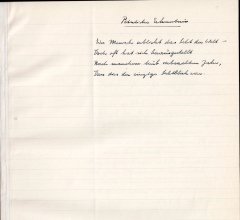 Der Mensch erblickt das Licht der Welt –
Doch oft hat sich herausgestellt
Nach manchem trüb verbrachten Jahr,
Dass dies der einzige Lichtblick war.